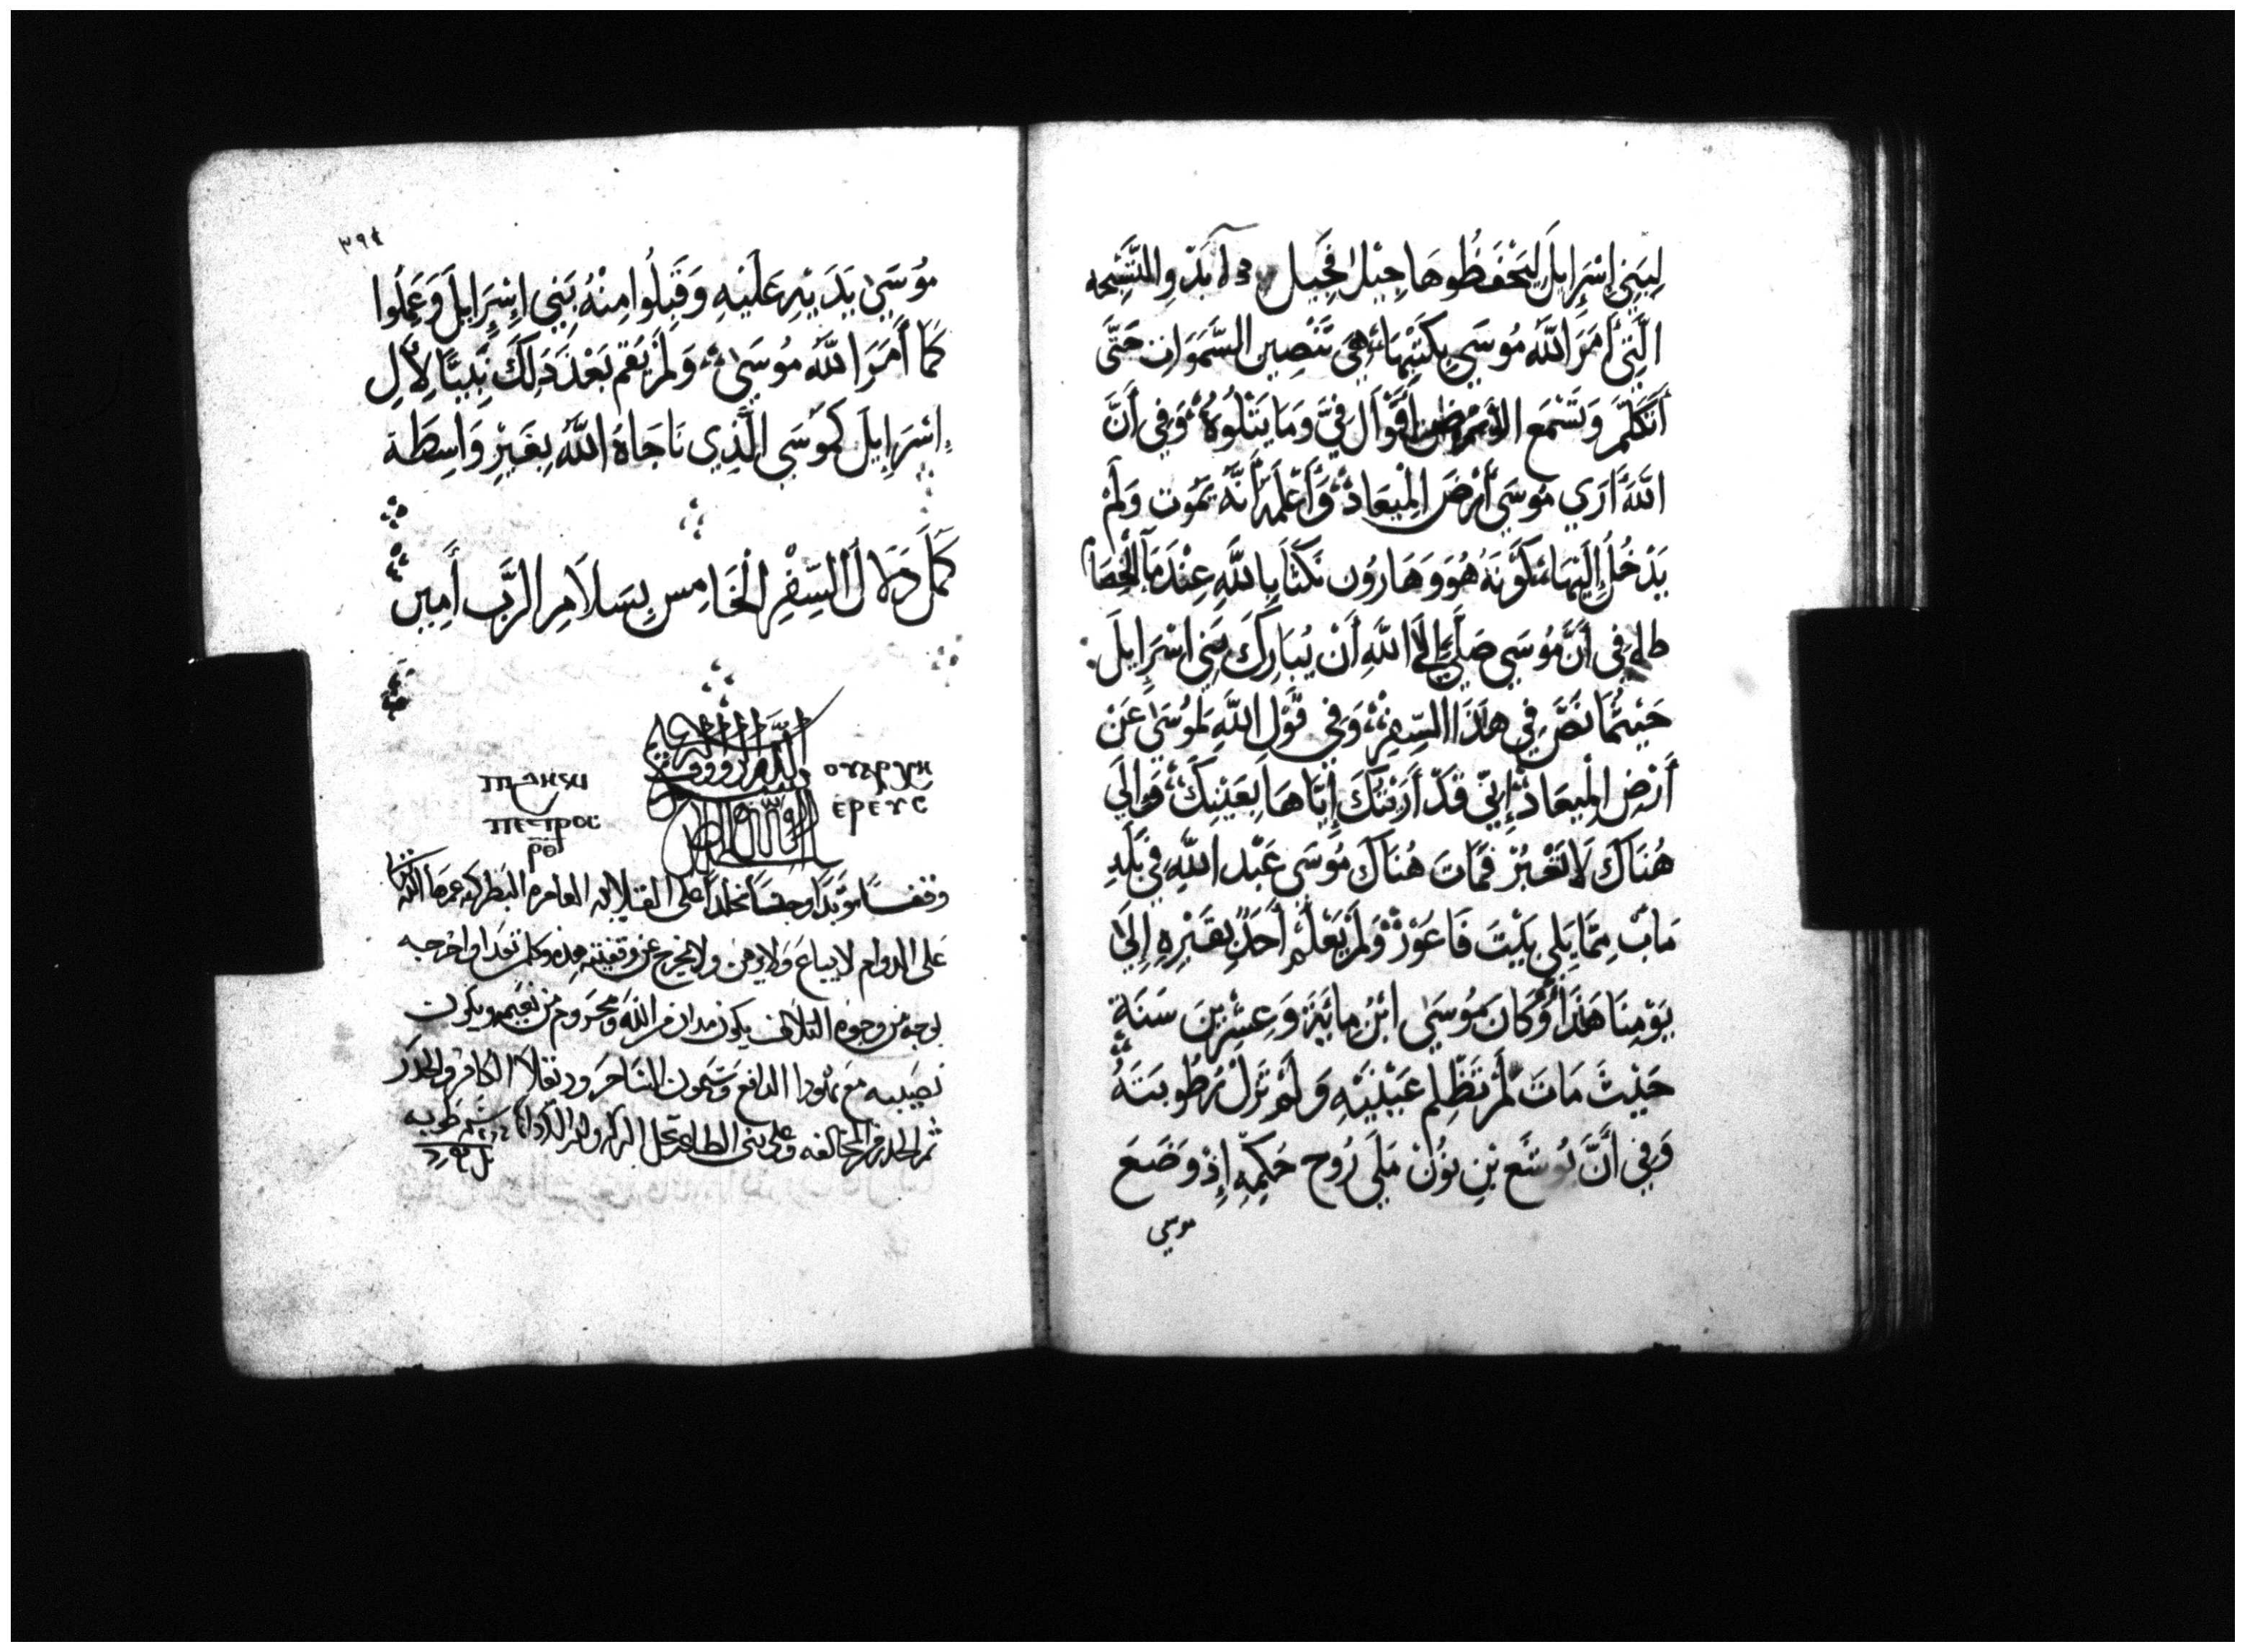 لِبَنِي إِسْرَايِلَ لِيَحْفَظُوهَا جِيْل فَجِيل وَالتَّسْبِحه
الَّتِي أَمَرَ اللَّه مُوسَي بِكَتْبِهَا هِيَ تَنْصِين السَّمَوَات حَتَّى
أَتَكَلَّمَ وَتَسْمَع الأرض أَقْوَال فِيَّ وَمَا يَتْلُوهُ وَفِي أَنَّ
اللَّه اَرَي مُوسَي أَرْضَ الْمِيعَاد وَأَعْلَمَهُ أَنَّهُ يَمُوت وَلَمْ
يَدْخُل إِلَيْهَا كَوْنَهُ هُوَ وَهَارُون نَكَثَا بِاللَّهِ عِنْدَ مَآ الْخِصَام
وَفِي أَنَّ مُوسَي صَلَّي إِلَى اللَّهِ أَنْ يُبَارِكَ بَنِي اسْرَايِلَ
حَيْثُمَا نَصَّ فِي هَذَا السِّفِر وَفِي قَوْلِ اللَّهِ لِمُوسَى عَنْ
أَرْضِ الْمِيعَاد إِنِّي قَدْ أَرَيْتُكَ إِيَّاهَا بِعَيْنِيكَ وَإِلَي
هُنَاكَ لَا تَعْبُرْ فَمَاتَ هُنَاكَ مُوسَى عَبْد اللَّهِ فِي بَلَدِ
مَابْ مِمَّا يَلِي بَيْتَ فَاعُوْرْ وَلَمْ يَعْلَمْ أَحَدٌ بِقَبْرِهِ إِلَىٰ
يَوْمِنَا هَذَا وَكَانَ مُوسَىٰ ابْنُ مِائَيَةَ وَعِشْرِينَ سَنَةٍ
حَيْثَ مَاتَ لَمْ تَظْلِم عَيْنَيْهِ وَلَمْ تَزَلْ رُطُوبَتَهُ
وَفِي أَنَّ يُوشَع بْنِ نُوْنْ مَلَي رُوح حَكِيْمَهِ إِذْ وَضَعَ
موسي
٣٩٤
مُوسَىٰ يَدَيْهِ عَلَيْهِ وَقَبِلُوا مِنْهُ بَنِي إِسْرَايِلَ وَعَمِلُوا
كَمَا أَمَرَ اللَّه مُوسَىٰ وَلَمْ يَقُم بَعْدَ ذَلِكَ نَبِيًّا لِآلِ
إِسْرَايِلَ كَمُوسَى الَّذِي نَاجَاهُ اللَّهُ بِغَيْرِ وَاسِطَة
كَمَلَ دَلَال السِّفْرِ الْخَامِس بِسَلَامِ الرَّب أَمِين
ⲡⲉⲧⲣⲟⲥ
ⲣ̅ⲑ̅
ⲉⲣⲉⲩⲥ
وقفًا مؤبدًا وحبسًا مخلدًا على القلايه العامره البطركيه عمرها الله
على الدوام لا يباع ولا يرهن ولا يخرج عن وقفيته هذه وكلمن تعدا واخرجه
بوجه من وجوه التلاف يكون مدان من الله ومحروم من نعيمه ويكون
نصيبه مع يهودا الدافع وسيمون الساحر ودقلا الكافر والحذر
ثم الحذر من المخالفه وعلى بني الطاعه تحل البركه